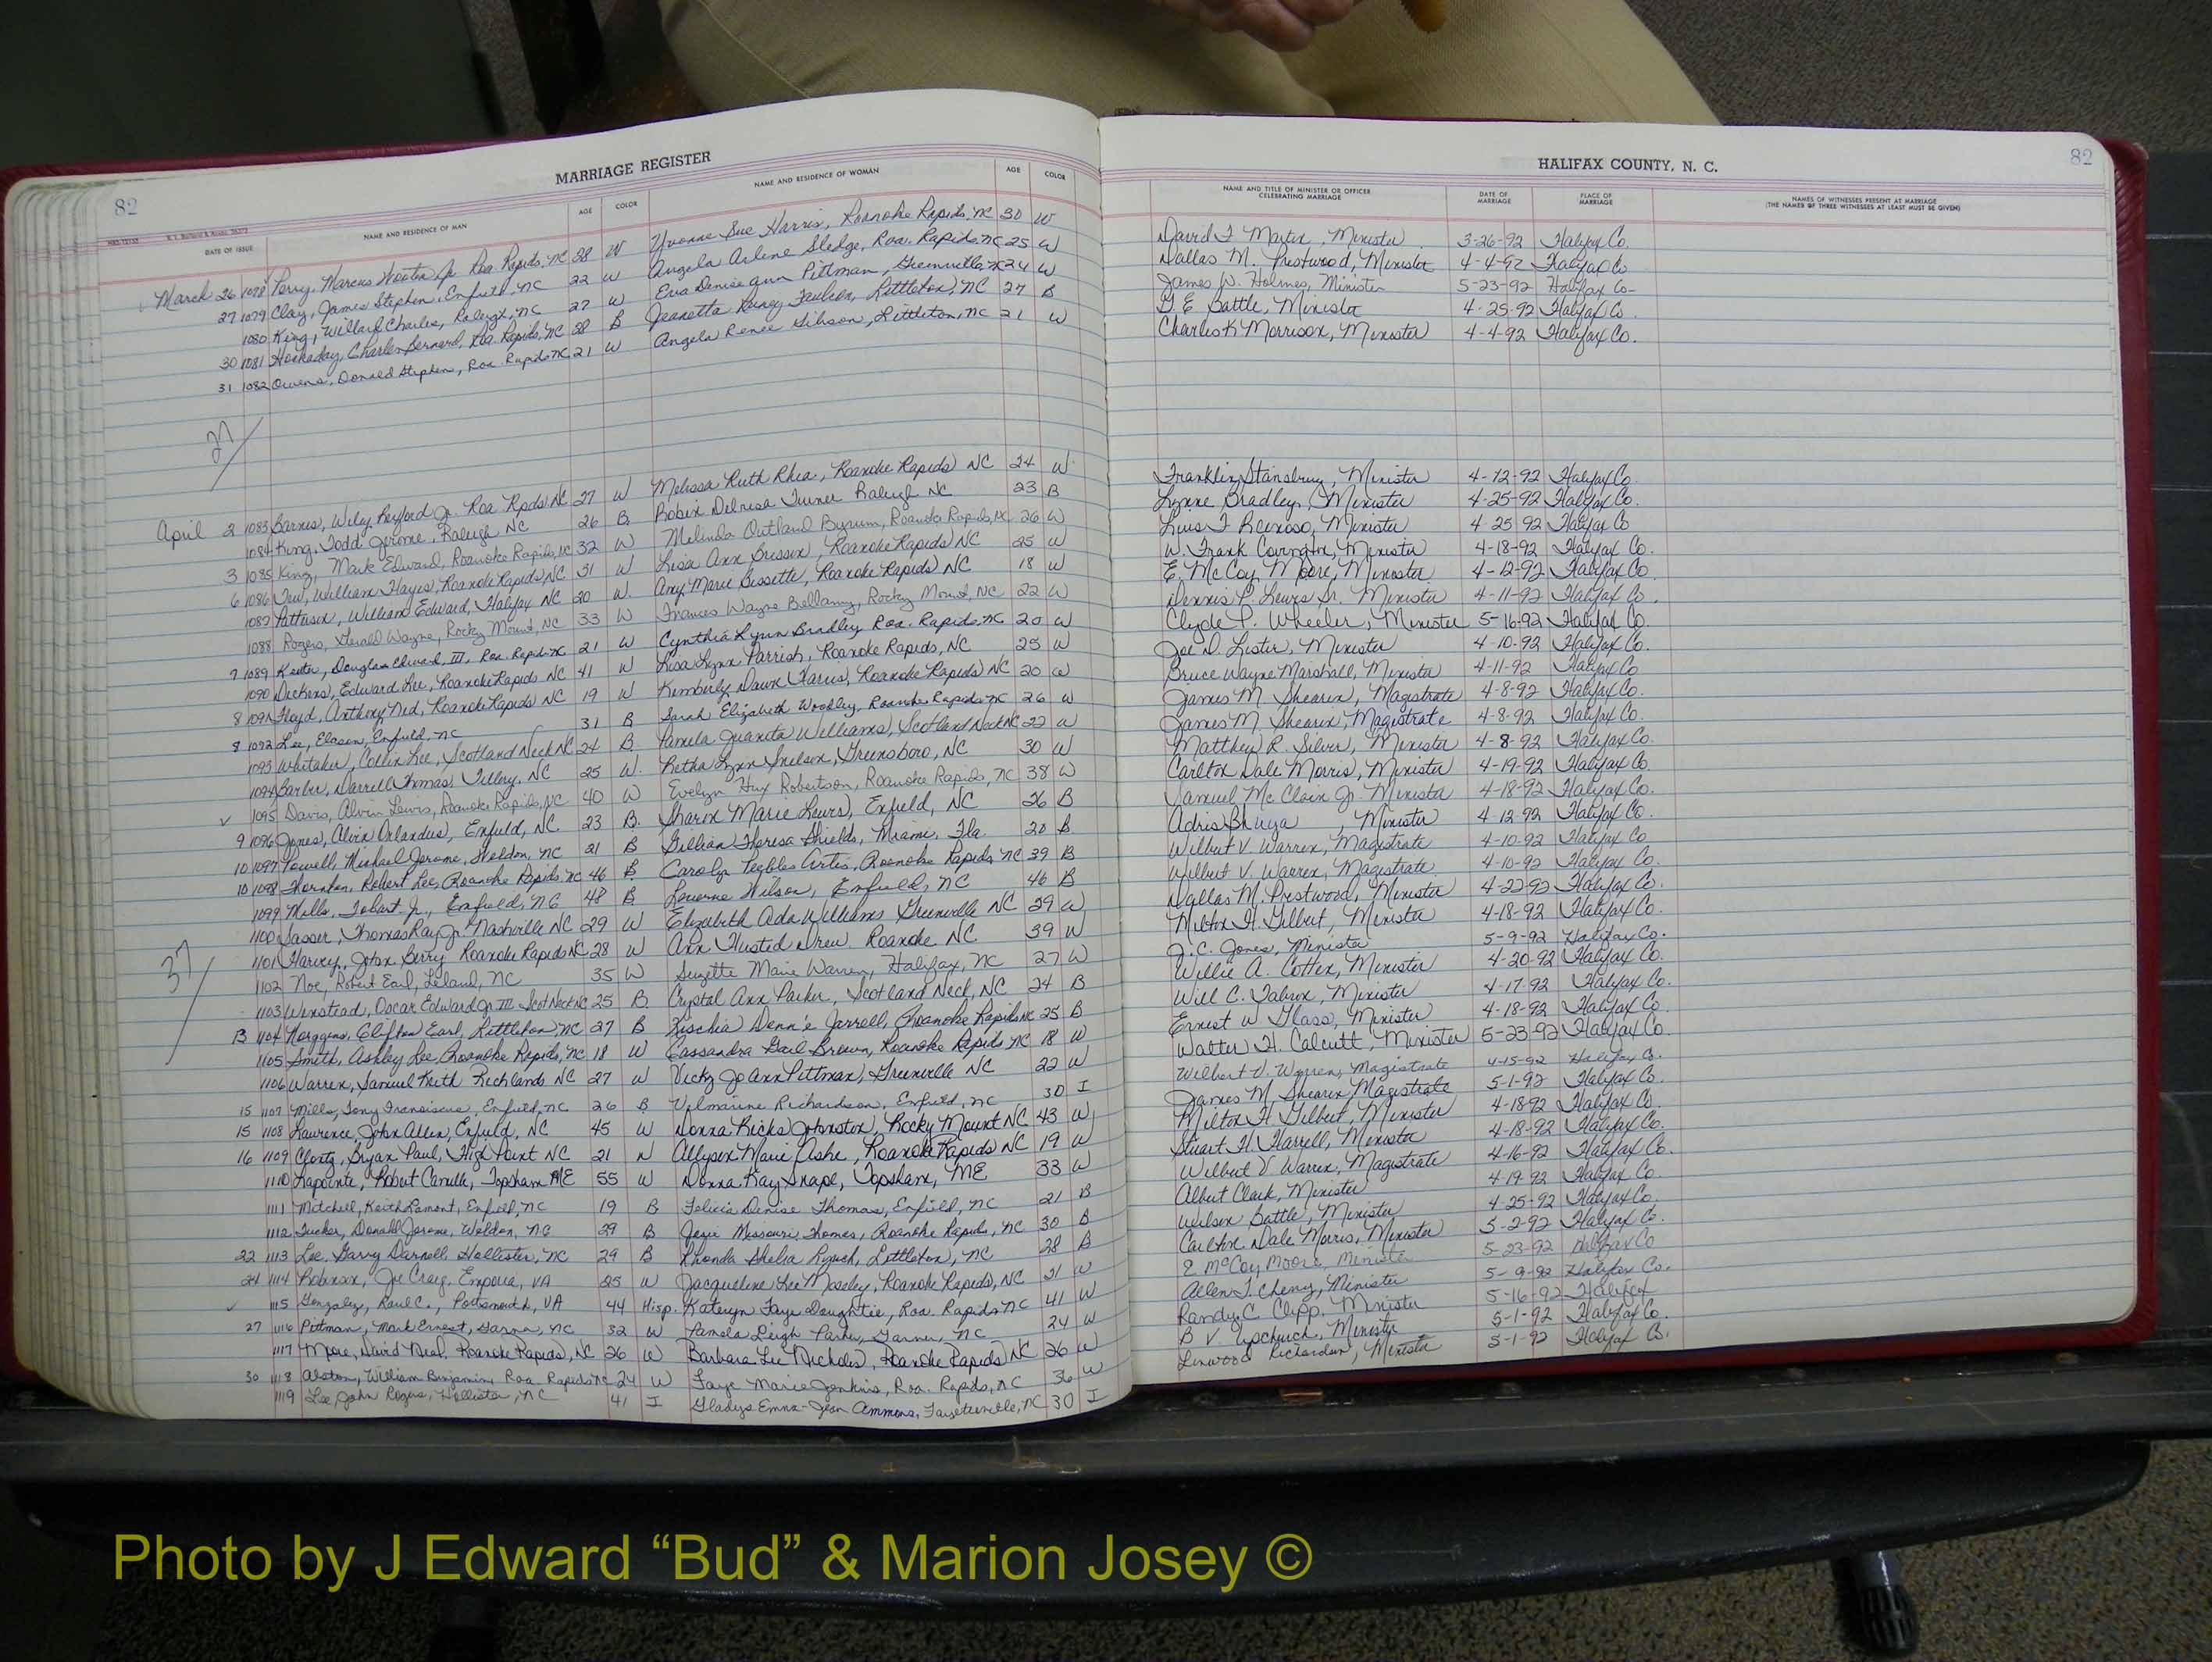 82
MARRIAGE REGISTER
DATE OF ISSUE NAME AND RESIDENCE OF MAN AGE COLOR NAME AND RESIDENCE OF WOMAN AGE COLOR
March 26 1078 Perry, Marcus Jr. Roa Rapids, NC 38 W Yvonne Sue Harris, Roanoke Rapids, NC 30 W
27 1079 Clay, James Stephen, Enfield, NC 22 W Angela Arlene Sledge, Roa. Rapids, NC 25 W
1080 King, Willard Charles, Raleigh, NC 27 W Eva Denise Pittman, Greenville, NC 24 W
30 1081 Hockaday, Charles Bernard, Roa. Rapids, NC 28 B Jeanetta Faulcon, Littleton, NC 27 B
31 1082 Owens, Donald Stephen, Roa Rapids NC 21 W Angela Renee Gibson, Littleton, NC 21 W
April 2 1083 Barnes, Wiley Jr. Roa Rpds NC 27 W Melissa Ruth Rhea, Roanoke Rapids NC 24 W
1084 King, Todd Jerome, Raleigh NC 26 B Robin Turner Raleigh NC 23 B
3 1085 King, Mark Edward, Roanoke Rapids, NC 32 W Melinda Outland Byrum, Roanoke Rapids, NC 26 W
6 1086 William Hayes, Roanoke Rapids NC 31 W Lisa Ann Roanoke Rapids NC 25 W
1087 Patterson, William Edward, Halifax NC 20 W Amy Marie Bessette, Roanoke Rapids NC 18 W
1088 Rogers, Gerald Wayne, Rocky Mount, NC 33 W Frances Wayne Bellamy, Rocky Mount, NC 22 W
7 1089 Keeter, Douglas Edward, III, Roa. Rapids NC 21 W Cynthia Lynn Bradley Roa. Rapids NC 20 W
1090 Dickens, Edward Lee, Roanoke Rapids NC 41 W Lisa Lynn Parrish, Roanoke Rapids, NC 25 W
8 1091 Floyd, Anthony Ned, Roanoke Rapids NC 19 W Kimberly Dawn Roanoke Rapids NC 20 W
8 1092 Lee, Enfield, NC 31 B Sarah Elizabeth Woodley, Roanoke Rapids NC 26 W
1093 Whitaker, Collin Lee, Scotland Neck NC 24 B Pamela Juanita Williams, Scotland Neck NC 22 W
1094 Barber, Darrell Thomas, Tillery, NC 25 W Retha Lynn Greensboro, NC 30 W
1095 Davis, Alvin Lewis, Roanoke Rapids, NC 40 W Evelyn Hux Robertson, Roanoke Rapids, NC 38 W
9 1096 Jones, Alvin Orlandus, Enfield, NC 23 B Sharon Marie Lewis, Enfield, NC 26 B
10 1097 Powell, Michael Jerome, Weldon, NC 21 B Gillian Theresa Shields, Miami, Fla. 20 B
10 1098 Thornton, Robert Lee, Roanoke Rapids, NC 46 B Carolyn Peebles Artis, Roanoke Rapids NC 39 B
1099 Mills, Jr., Enfield, NC 48 B Wilson, Enfield, NC 46 B
1100 Sasser, Thomas Ray Jr. Nashville NC 29 W Elizabeth Ada Williams Greenville NC 29 W
1101 Harvey, John Berry Roanoke Rapids NC 28 W Ann Husted Drew Roanoke NC 39 W
1102 Noe, Robert Earl, Leland, NC 35 W Suzette Marie Warren, Halifax, NC 27 W
1103 Winstead, Oscar Edward Scot Neck NC 25 B Crystal Ann Parker, Scotland Neck, NC 24 B
13 1104 Clifton Earl, Littleton, NC 27 B Jarrell, Roanoke Rapids NC 25 B
1105 Smith, Ashley Lee, Roanoke Rapids, NC 18 W Cassandra Gail Brown, Roanoke Rapids NC 18 W
1106 Warren, Samuel Keith Richlands NC 27 W Vicky Jo Ann Pittman, Greenville NC 22 W
15 1107 Mills, Tony Enfield, NC 26 B Richardson, Enfield, NC 30 I
15 1108 Laurence, John Allen, Enfield, NC 45 W Donna Ricks Johnston, Rocky Mount NC 43 W
16 1109 Bryan Paul, High Point NC 21 W Allyson Marie Ashe, Roanoke Rapids NC 19 W
1110 Lapointe, Robert Camille, Topsham ME 55 W Donna Kay Snape, Topsham, ME 33 W
1111 Mitchell, Keith Lamont, Enfield, NC 19 B Felicia Denise Thomas, Enfield, NC 21 B
1112 Tucker, Donald Jerome, Weldon, NC 29 B Missouri Thomas, Roanoke Rapids, NC 30 B
22 1113 Lee, Garry Darnell, Hollister, NC 29 B Rhonda Shelia Lynch, Littleton, NC 28 B
24 1114 Robinson, Joe Craig, Emporia, VA 25 W Jacqueline Lee Moseley, Roanoke Rapids, NC 21 W
1115 Gonzalez, Raul C., Portsmouth, VA 44 Hisp. Kateryn Faye Daughtie, Roa. Rapids NC 41 W
27 1116 Pittman, Mark Ernest, Garner, NC 32 W Pamela Leigh Parker, Garner, NC 24 W
1117 Moore, David Neal, Roanoke Rapids, NC 26 W Barbara Lee Nichols, Roanoke Rapids NC 26 W
30 1118 Alston, William Benjamin, Roa. Rapids NC 24 W Faye Marie Jenkins, Roa. Rapids, NC 36 W
1119 Lee, John Rogers, Hollister, NC 41 I Gladys Emma-Jean Ammons, Fayetteville, NC 30 I
37
HALIFAX COUNTY, N. C.
82
NAME AND TITLE OF MINISTER OR OFFICER CELEBRATING MARRIAGE DATE OF MARRIAGE PLACE OF MARRIAGE NAMES OF WITNESSES PRESENT AT MARRIAGE (THE NAMES OF THREE WITNESSES AT LEAST MUST BE GIVEN)
David F Martin, Minister 3-26-92 Halifax Co.
Dallas M. Prestwood, Minister 4-4-92 Halifax Co
James W. Holmes, Minister 5-23-92 Halifax Co-
G E Battle, Minister 4-25-92 Halifax Co.
Charles K Morrison, Minister 4-4-92 Halifax Co.
Franklin Stansbury, Minister 4-12-92 Halifax Co.
Lynne Bradley, Minister 4-25-92 Halifax Co.
Luis F Reinoso, Minister 4-25-92 Halifax Co
W. Frank Covington, Minister 4-18-92 Halifax Co.
E. McCoy Moore, Minister 4-12-92 Halifax Co
Dennis P Lewis Sr. Minister 4-11-92 Halifax Co.
Clyde P. Wheeler, Minister 5-16-92 Halifax Co.
Joe D. Lister, Minister 4-10-92 Halifax Co.
Bruce Wayne Marshall, Minister 4-11-92 Halifax Co
James M. Shearin, Magistrate 4-8-92 Halifax Co.
James M. Shearin, Magistrate 4-8-92 Halifax Co.
Matthew R. Silver, Minister 4-8-92 Halifax Co.
Carlton Dale Morris, Minister 4-19-92 Halifax Co.
Samuel McClain Jr. Minister 4-18-92 Halifax Co.
Adris Bhuya, Minister 4 12 92 Halifax Co.
Wilbert V. Warren, Magistrate 4-10-92 Halifax Co
Wilbert V. Warren, Magistrate 4-10-92 Halifax Co.
Dallas M. Prestwood, Minister 4-22-92 Halifax Co.
Milton H. Gilbert, Minister 4-18-92 Halifax Co.
J. C. Jones, Minister 5-9-92 Halifax Co.
Willie A. Cotten, Minister 4-20-92 Halifax Co.
Will C. Tabron, Minister 4-17-92 Halifax Co.
Ernest W Glass, Minister 4-18-92 Halifax Co.
Walter H. Calcutt, Minister 5-23-92 Halifax Co.
Wilbert V. Warren, Magistrate 4-15-92 Halifax Co.
James M, Shearin Magistrate 5-1-92 Halifax Co.
Milton H Gilbert, Minister 4-18-92 Halifax Co.
Stuart H. Harrell, Minister 4-18-92 Halifax Co.
Wilbert V Warren, Magistrate 4-16-92 Halifax Co.
Albert Clark, Minister 4-19-92 Halifax Co.
Wilson Battle, Minister 4-25-92 Halifax Co.
Carlton Dale Morris, Minister 5-2-92 Halifax Co.
E McCoy Moore, Minister 5-23-92 Halifax Co
Allen J. Cheny, Minister 5-9-92 Halifax Co.
Randy C. Clipp, Minister 5-16-92 Halifax
B V. Upchurch, Minister 5-1-92 Halifax Co.
Linwood Richardson, Minister 5-1-92 Halifax Co.
Photo by J Edward “Bud” & Marion Josey ©